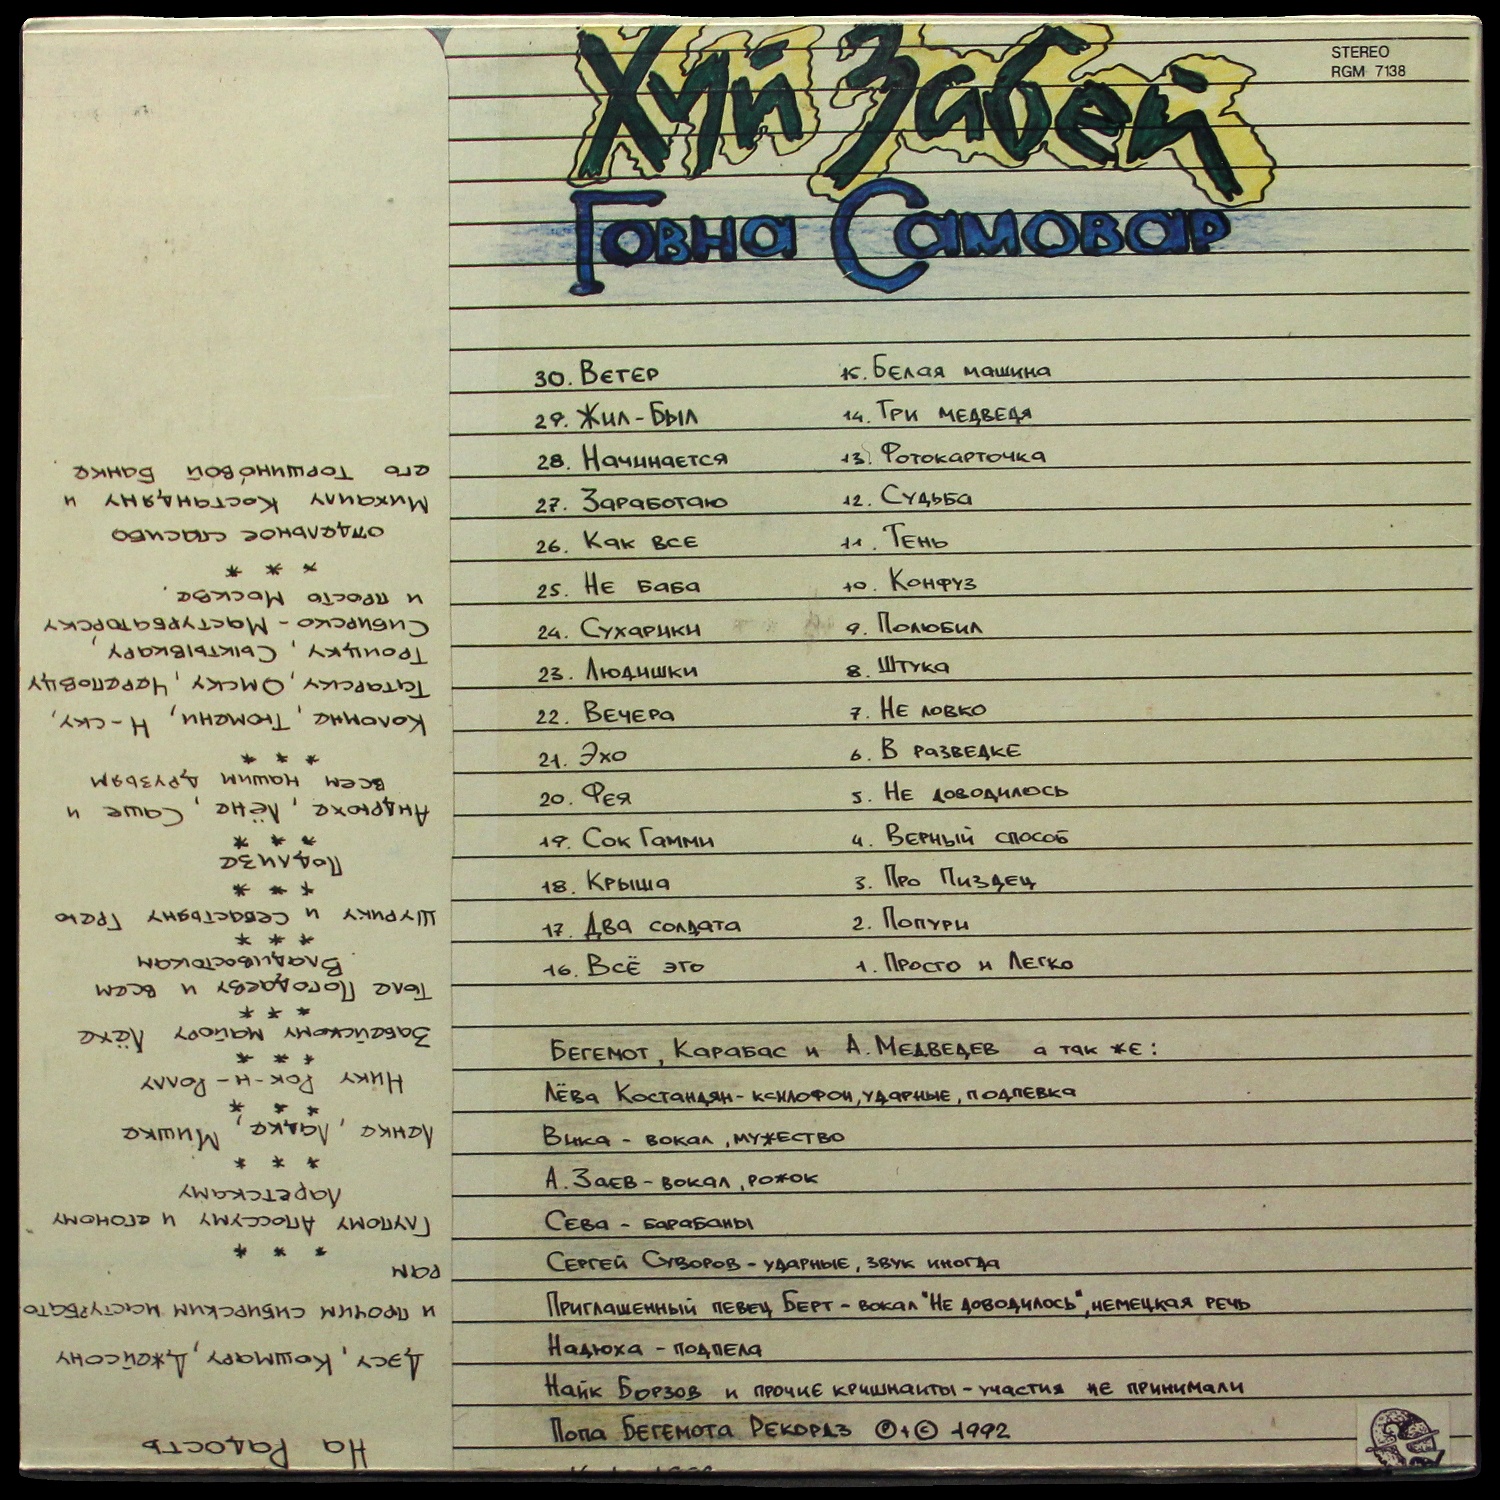 Хуй Забей
Говна Самовар
STEREO
RGM 7138
30. Ветер
29. Жил-Был
28. Начинается
27. Заработаю
26. Как все
25. Не баба
24. Сухарики
23. Людишки
22. Вечера
21. Эхо
20. Фея
19. Сок Гамми
18. Крыша
17. Два солдата
16. Всё это
15. Белая машина
14. Три медведя
13. Фотокарточка
12. Судьба
11. Тень
10. Конфуз
9. Полюбил
8. Штука
7. Не ловко
6. В разведке
5. Не доводилось
4. Верный способ
3. Про Пиздец
2. Попури
1. Просто и Легко
Бегемот, Карабас и А. Медведев а так же:
Лёва Костандян - ксилофон, ударные, подпевка
Вика - вокал, мужество
А. Заев - вокал, рожок
Сева - барабаны
Сергей Суворов - ударные, звук иногда
Приглашенный певец Берт - вокал "Не доводилось", немецкая речь
Надюха - подпела
Найк Борзов и прочие кришнаиты - участия не принимали
Попа Бегемота Рекордз Ⓟ+© 1992
На Радость
Дэсу, Кошмару, Джейсону
и прочим сибирским мастурбато
рам
* * *
Глупому Апоссуму и егоному
Ларетскаму
* * *
Ленке, Ладке, Мишке
* * *
Нику Рок-н-Роллу
* * *
Забейскому майору Лёхе
* * *
Толе Погодаеву и всем
Владивостокам
* * *
Шурику и Севастьяну Грею
* * *
Подлизе
* * *
Андрюхе, Лёне, Саше и
всем нашим друзьям
* * *
Коломне, Тюмени, Н-ску,
Татарску, Омску, Череповцу
Троицку, Сыктывкару,
Сибирско-Мастурбаторску
и просто Москве.
* * *
отдельное спасибо
Михаилу Костандяну и
его Торшиновой Банке